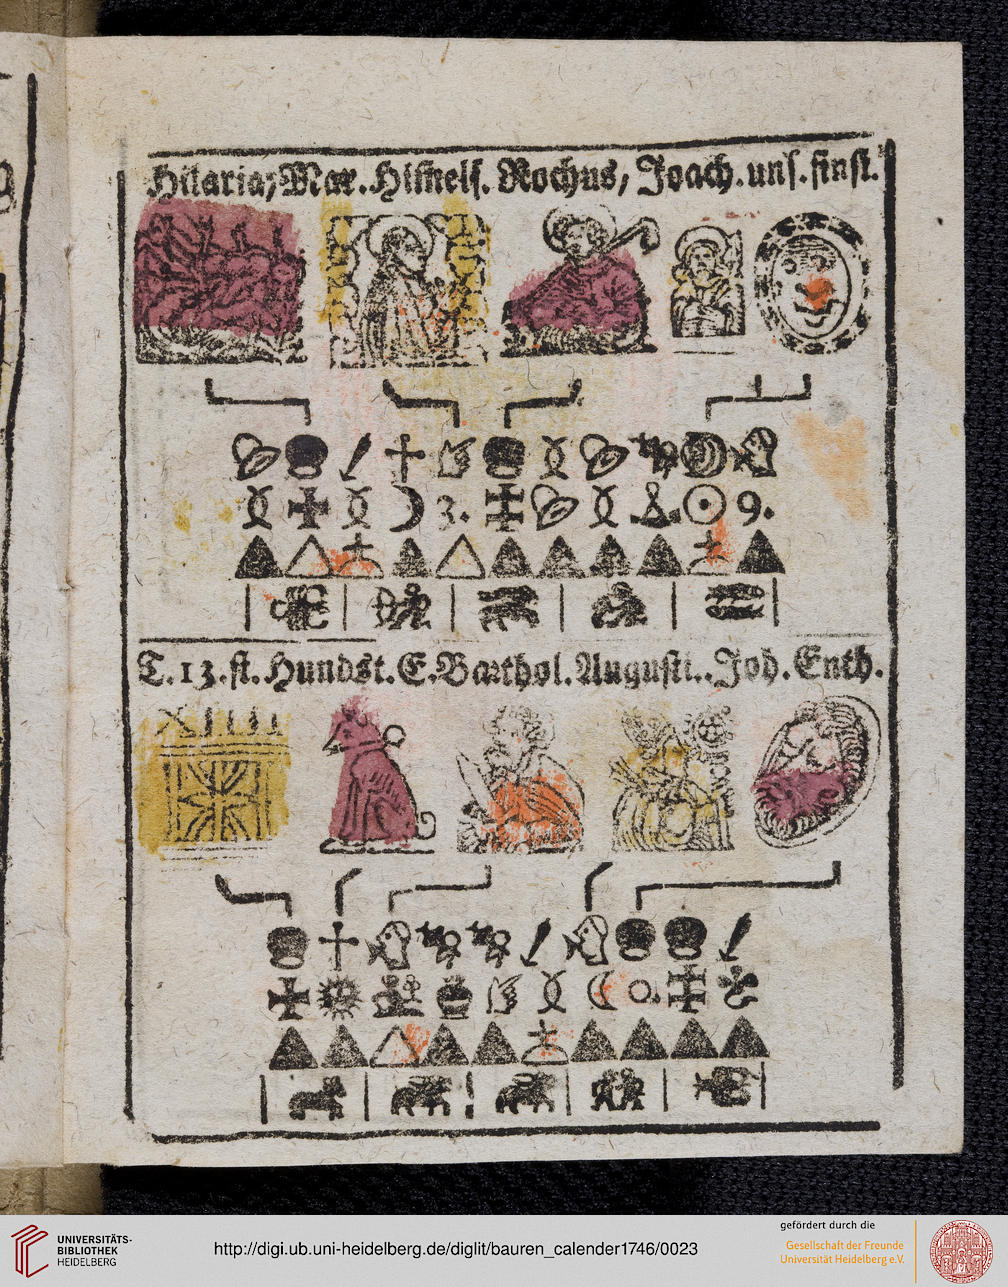 Hilaria, Mar. Himels. Rochus, Joach. uns. finst.
3. 9.
T. 13. st. Hundst. E. Barthol. Augusti.. Joh. Enth.
XIIII
UNIVERSITÄTS-
BIBLIOTHEK
HEIDELBERG
http://digi.ub.uni-heidelberg.de/diglit/bauren_calender1746/0023
gefördert durch die
Gesellschaft der Freunde
Universität Heidelberg e.V.